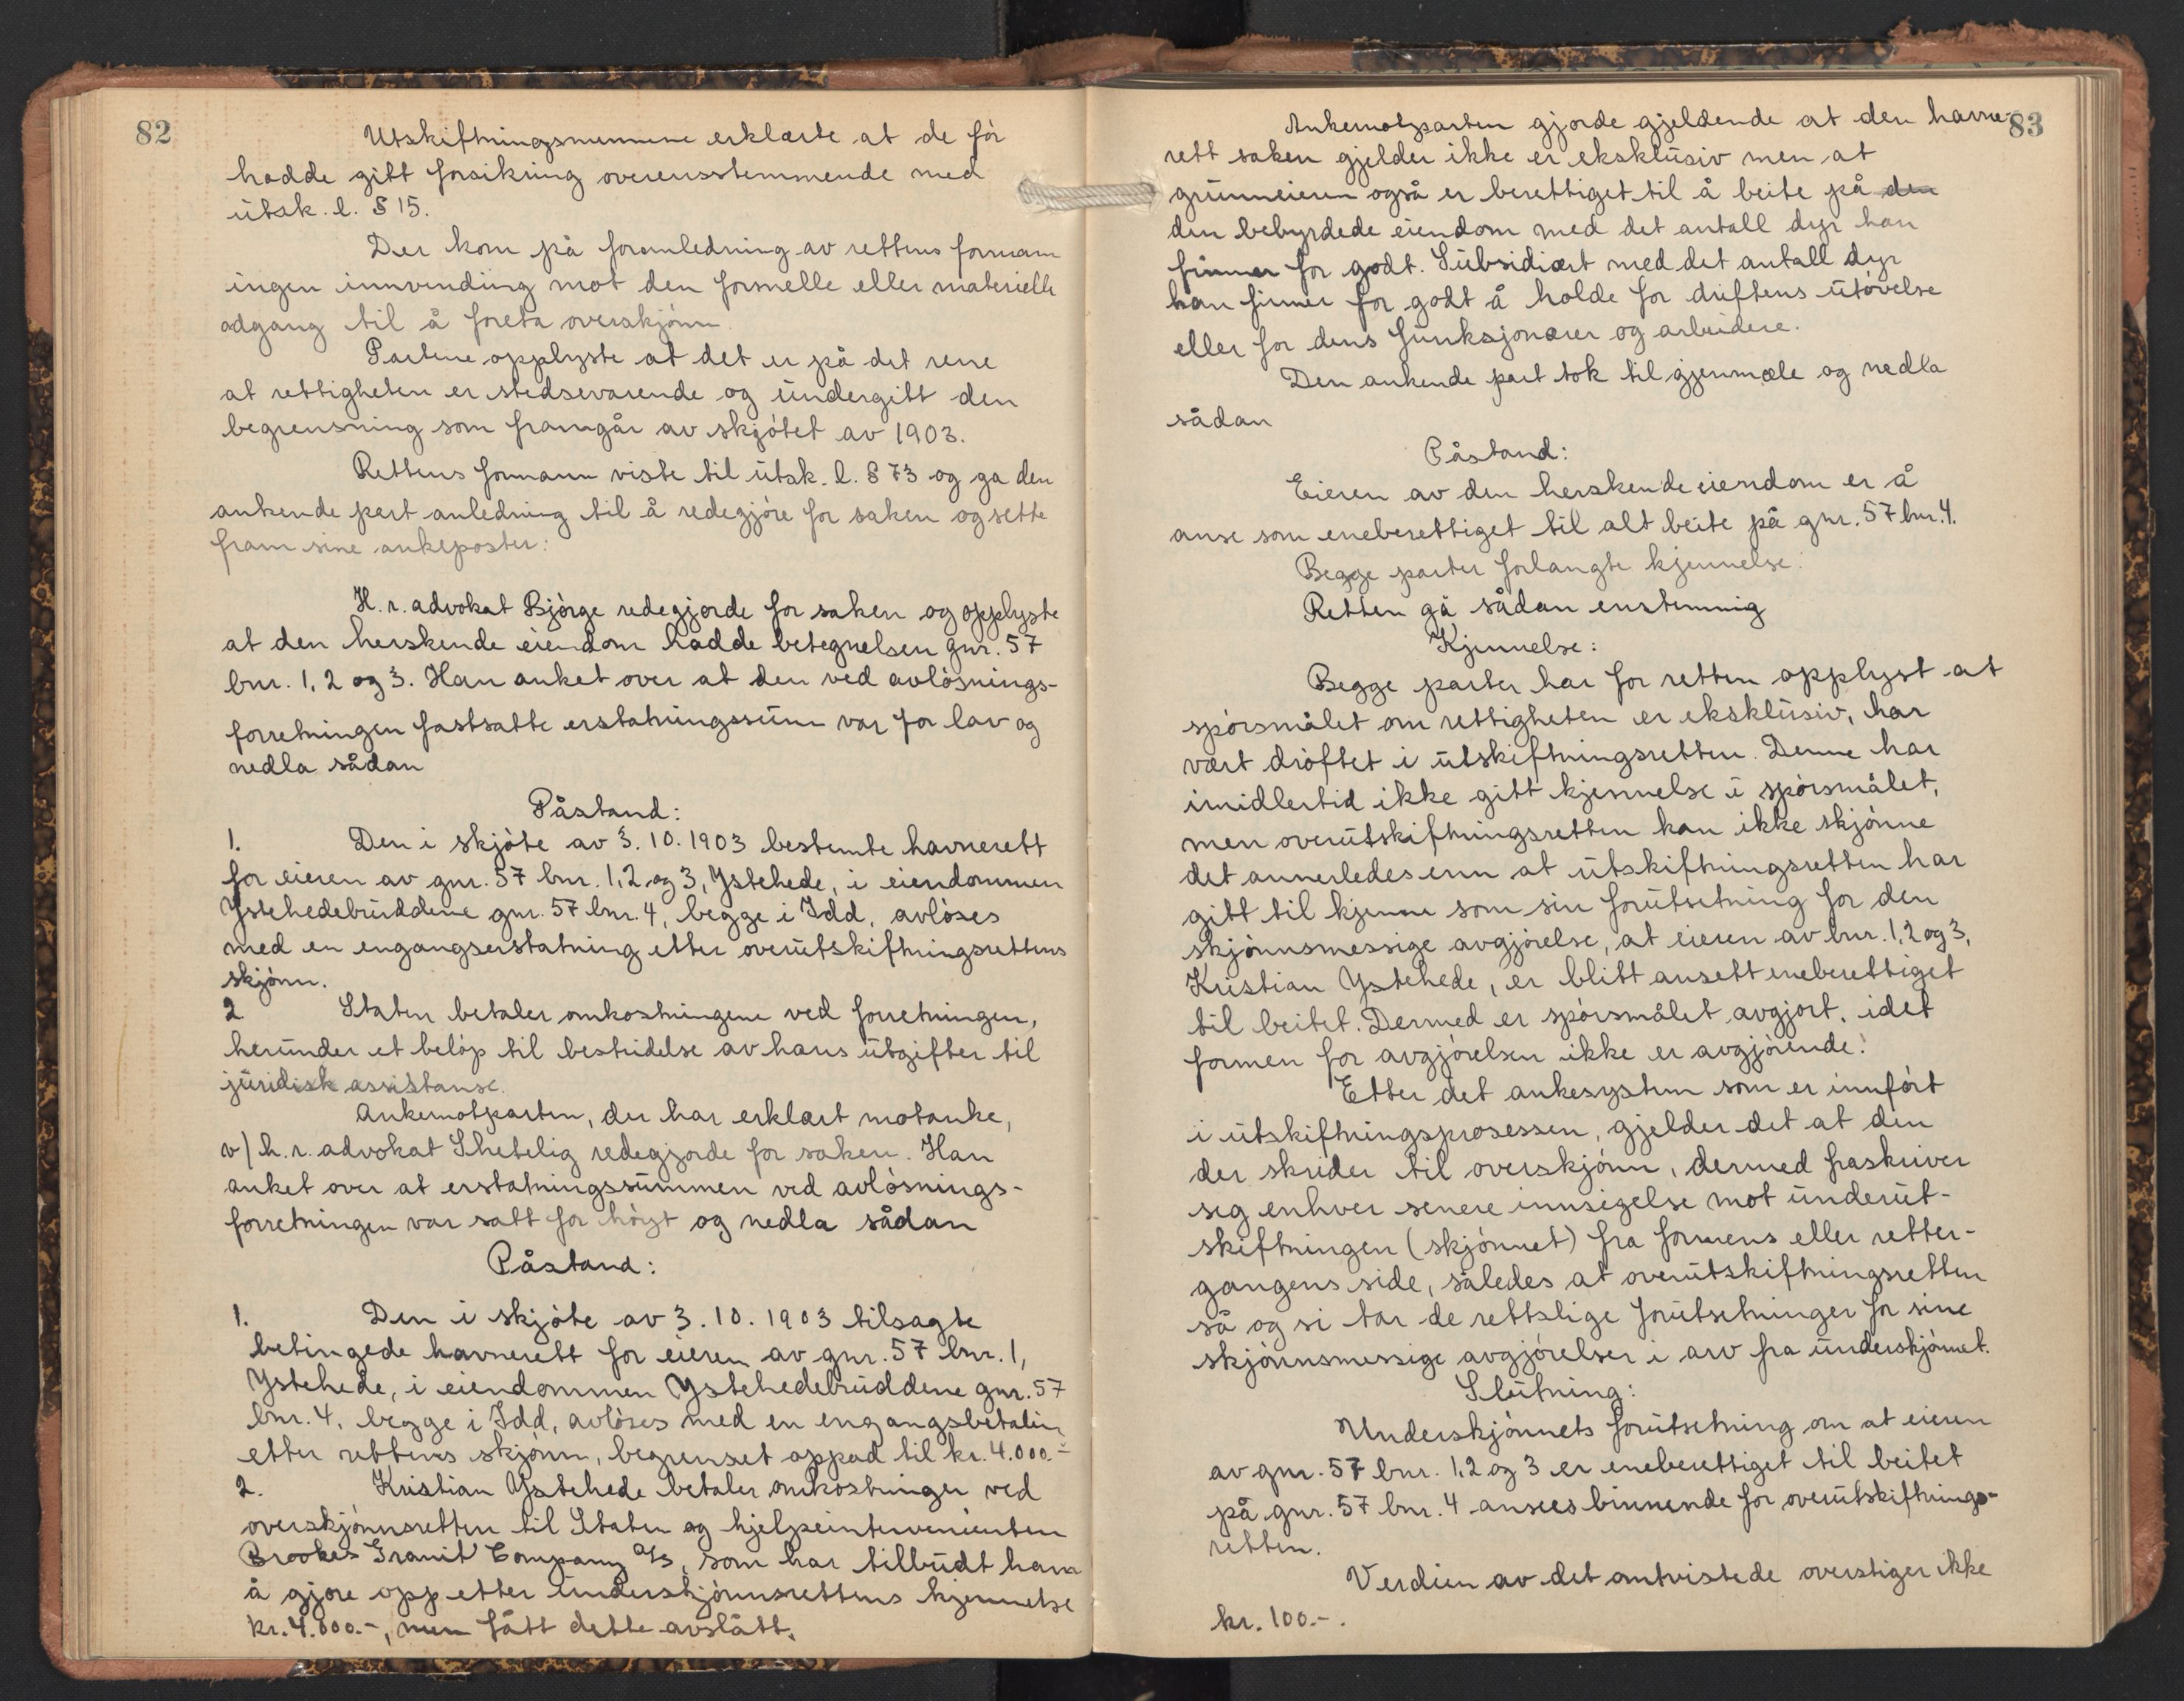 82
Utskiftningsmennene erklærte at de før
hadde gitt forsikring overensstemmende med
utsk. l. § 15.
Der kom på foranledning av rettens formann
ingen innvending mot den formelle eller materielle
adgang til å foreta overskjønn.
Partene opplyste at det er på det rene
at rettigheten er stedsevarende og undergitt den
begrensning som framgår av skjøtet av 1903.
Rettens formann viste til utsk. l. § 73 og ga den
ankende part anledning til å redegjøre for saken og sette
fram sine ankeposter:
H. r. advokat Bjørge redegjorde for saken og opplyste
at den herskende eiendom hadde betegnelsen gnr. 57
bnr. 1, 2 og 3. Han anket over at den ved avløsnings-
forretningen fastsatte erstatningssum var for lav og
nedla sådan
Påstand:
1. Den i skjøte av 3. 10. 1903 bestemte havnerett
for eieren av gnr. 57 bnr. 1, 2 og 3, Ystehede, i eiendommen
Ystehedebruddene gnr. 57 bnr. 4, begge i Idd, avløses
med en engangserstatning etter overutskiftningsrettens
skjønn.
2 Staten betaler omkostningene ved forretningen,
herunder et beløp til bestridelse av hans utgifter til
juridisk assistanse.
Ankemotparten, der har erklært motanke,
v/ h. r. advokat Shetelig redegjorde for saken. Han
anket over at erstatningssummen ved avløsnings-
forretningen var satt for høyt og nedla sådan
Påstand:
1. Den i skjøte av 3. 10. 1903 tilsagte
betingede havnerett for eieren av gnr. 57 bnr. 1,
Ystehede, i eiendommen Ystehedebruddene gnr. 57
bnr. 4, begge i Idd, avløses med en engangsbetalin
etter rettens skjønn, begrenset oppad til kr. 4.000.-
2. Kristian Ystehede betaler omkostninger ved
overskjønnsretten til Staten og hjelpeintervenienten
Brookes Granit Company A/S, som har tilbudt ham
å gjøre opp etter underskjønnsrettens kjennelse
kr. 4.000.-, men fått dette avslått.
83
Ankemotparten gjorde gjeldende at den havne-
rett saken gjelder ikke er eksklusiv men at
grunneieren også er berettiget til å beite på den
den bebyrdede eiendom med det antall dyr han
finner for godt. Subsidiært med det antall dyr
han finner for godt å holde for driftens utøvelse
eller for dens funksjonærer og arbeidere.
Den ankende part tok til gjenmæle og nedla
sådan
Påstand:
Eieren av den herskende eiendom er å
anse som eneberettiget til alt beite på gnr. 57 bnr. 4.
Begge parter forlangte kjennelse.
Retten ga sådan enstemmig
Kjennelse:
Begge parter har for retten opplyst at
spørsmålet om rettigheten er eksklusiv, har
vært drøftet i utskiftningsretten. Denne har
imidlertid ikke gitt kjennelse i spørsmålet,
men overutskiftningsretten kan ikke skjønne
det annerledes enn at utskiftningsretten har
gitt til kjenne som sin forutsetning for den
skjønnsmessige avgjørelse, at eieren av bnr. 1, 2 og 3,
Kristian Ystehede, er blitt ansett eneberettiget
til beitet. Dermed er spørsmålet avgjort, idet
formen for avgjørelsen ikke er avgjørende.
Etter det ankesystem som er innført
i utskiftningsprosessen, gjelder det at den
der skrider til overskjønn, dermed fraskriver
seg enhver senere innsigelse mot underut-
skiftningen (skjønnet) fra formens eller retter-
gangens side, således at overutskiftningsretten
så og si tar de rettslige forutsetninger for sine
skjønnsmessige avgjørelser i arv fra underskjønnet.
Slutning:
Underskjønnets forutsetning om at eieren
av gnr. 57 bnr. 1, 2 og 3 er eneberettiget til beitet
på gnr. 57 bnr. 4 ansees binnende for overutskiftnings-
retten.
Verdien av det omtvistede overstiger ikke
kr. 100.-.